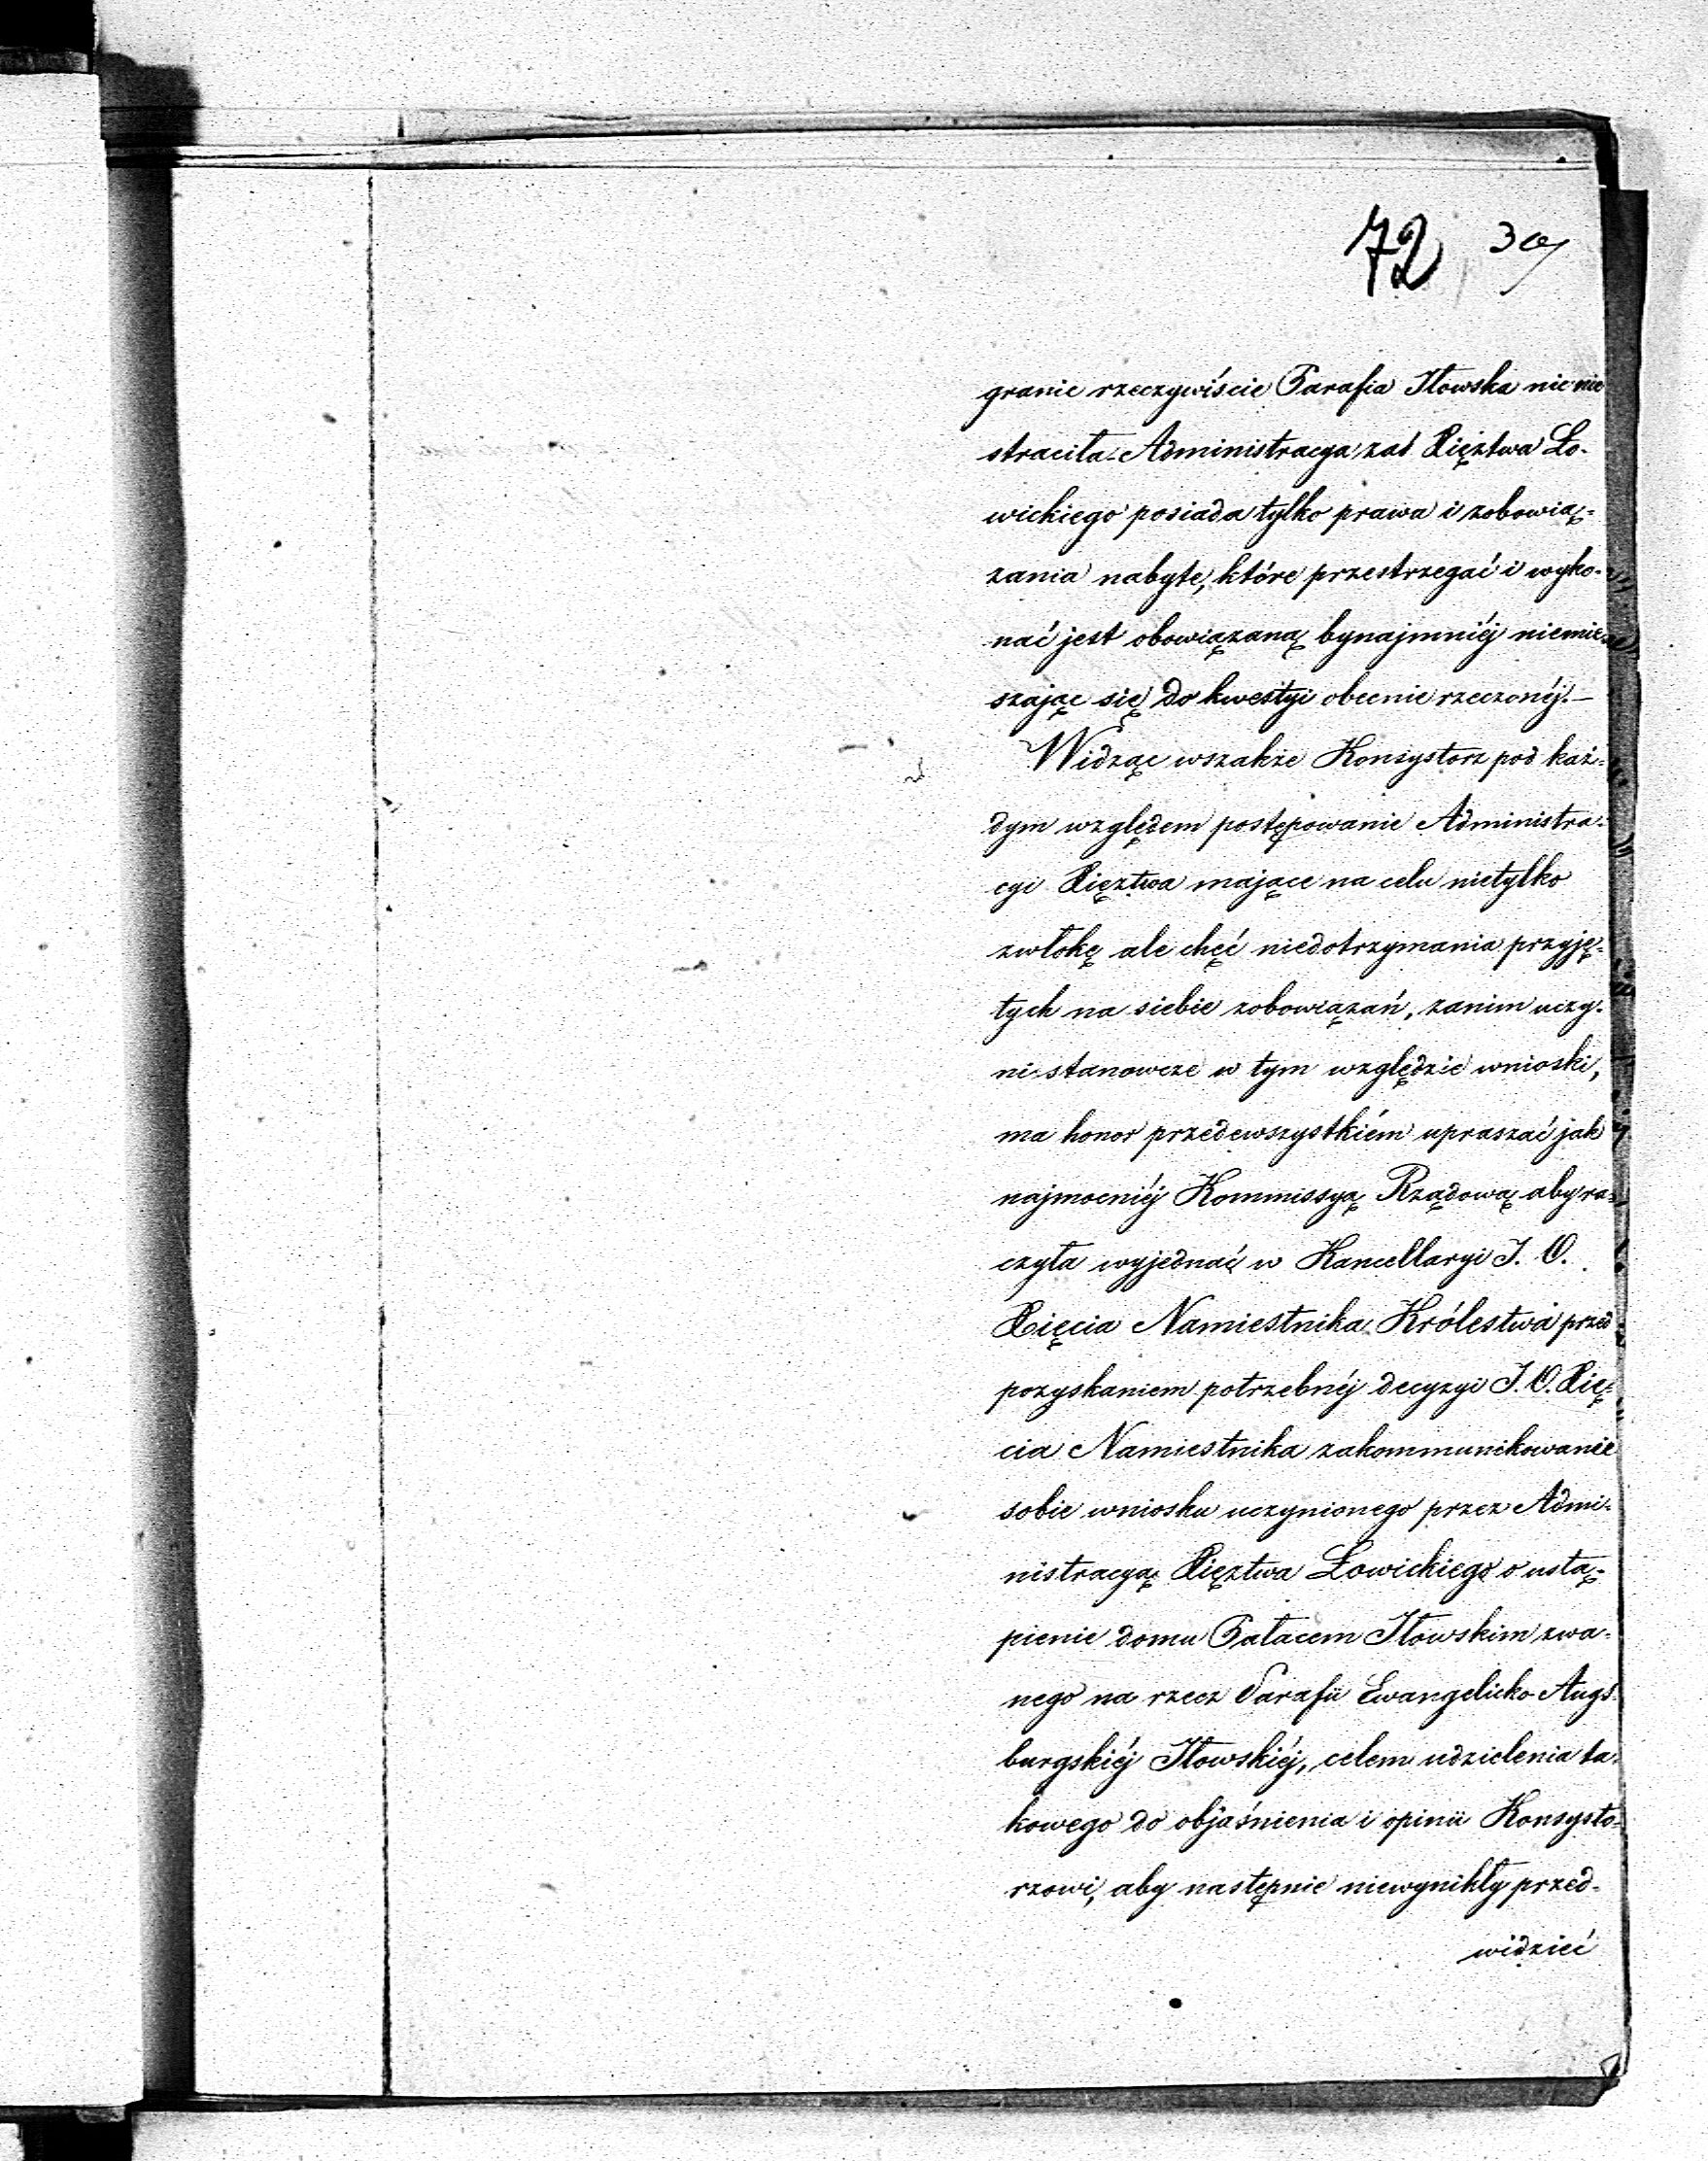 72
granie rzeczywiście Parafia Iłowska nic nie
straciła. Administracya zaś Xięztwa Ło-
wickiego posiada tylko prawa i zobowią-
zania nabyte, które przestrzegać i wyko-
nać jest obowiązaną bynajmniéj niemie
szając się do kwestyi obecnie rzeczonéj.—
Widząc wszakże Konsystorz pod każ-
dym względem postępowanie Administra-
cyi Xięztwa mające na celu nietylko
zwłokę ale chęć niedotrzymania przyję-
tych na siebie zobowiązań, zanim uczy-
ni stanowcze w tym względzie wnioski,
ma honor przedewszystkiém upraszać jak
najmocniéj Kommissyą Rządową aby ra-
czyła wyjednać w Kancellaryi J. O.
Xięcia Namiestnika Królestwa przed
pozyskaniem potrzebnéj decyzyi J. O. Xię-
cia Namiestnika zakommunikowanie
sobie wniosku uczynionego przez Admi-
nistracyą Xięztwa Łowickiego o ustą-
pienie domu Pałacem Iłowskim zwa-
nego na rzecz Parafii Ewangelicko-Augs-
burgskiéj Iłowskiéj, celem udzielenia ta-
kowego do objaśnienia i opinii Konsysto-
rzowi, aby następnie niewynikły przed-
widzieć